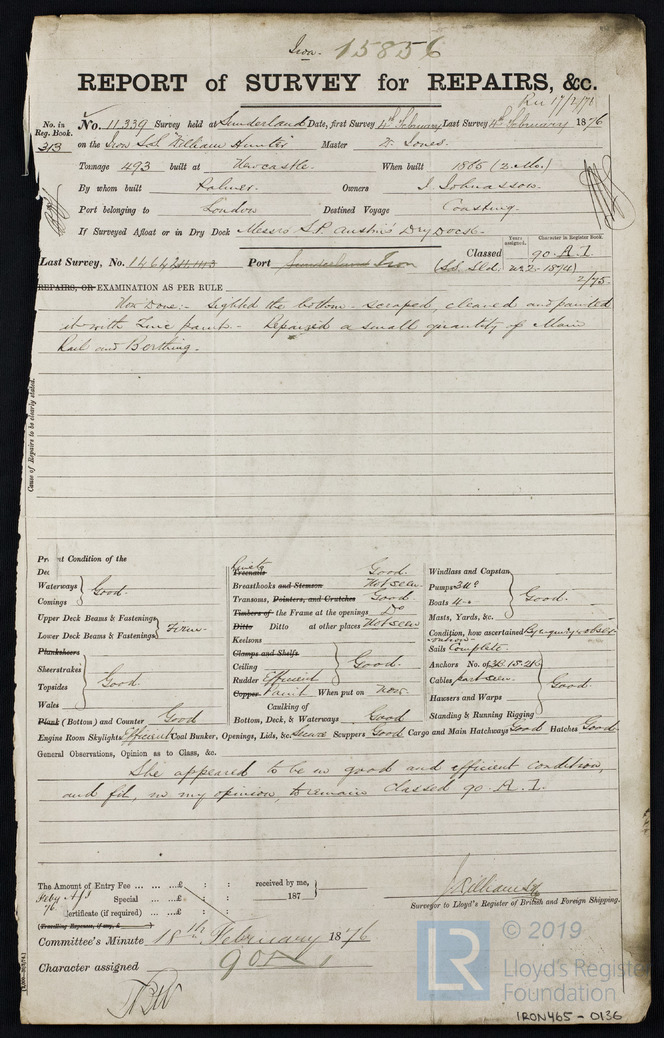 Iron. 15856
REPORT of SURVEY for REPAIRS, &c.
Rec 17/2/76
No. in Reg. Book. No. 11,339 Survey held at Sunderland Date, first Survey 4th February Last Survey 4th February 1876
313 on the Iron S.S. William Hunter Master W. Jones.
Tonnage 493 built at Newcastle. When built 1865 (2 Mo.)
By whom built Palmer. Owners J. Johnasson.
Port belonging to London Destined Voyage Coasting.
If Surveyed Afloat or in Dry Dock Messrs S.P. Austin's Dry Dock.
Years assigned. Character in Register Book.
Last Survey, No. 14642 Port Sunderland Iron Classed 90. A. 1.
(S.S. Sld. No 2 - 1874)
2/75.
REPAIRS, OR EXAMINATION AS PER RULE
Now Done:- Sighted the bottom - scraped, cleaned and painted
it with Zinc paint. - Repaired a small quantity of Main
Rail and Berthing.
Cause of Repairs to be clearly stated.
Present Condition of the
Deck
Waterways Good.
Comings
Upper Deck Beams & Fastenings
Lower Deck Beams & Fastenings Firm
Planksheers
Sheerstrakes
Topsides Good.
Wales
Plank (Bottom) and Counter Good
Rivets Treenails Good.
Breasthooks and Stemson Not seen
Transoms, Pointers, and Crutches Good.
Timbers of the Frame at the openings Do
Ditto Ditto at other places Not seen
Keelsons
Clamps and Shelfs
Ceiling Good.
Rudder Efficient
Copper Paint When put on now.
Caulking of
Bottom, Deck, & Waterways Good
Windlass and Capstan
Pumps 3 No
Boats 4 Good.
Masts, Yards, &c.
Condition, how ascertained By enquiry & observation
Sails Complete.
Anchors No. of
Cables part seen. Good
Hawsers and Warps
Standing & Running Rigging
Engine Room Skylights Efficient Coal Bunker, Openings, Lids, &c. Secure Scuppers Good Cargo and Main Hatchways Good Hatches Good
General Observations, Opinion as to Class, &c.
She appeared to be in good and efficient condition,
and fit, in my opinion, to remain Classed 90. A. 1.
The Amount of Entry Fee ... ... ...£ : : received by me,
Special ... ...£ : : 187
Certificate (if required) ... ...£ : :
(Travelling Expenses, if any, £ )
Surveyor to Lloyd's Register of British and Foreign Shipping.
Committee's Minute 18th February 1876
Character assigned 90 A 1
© 2019
LR
Lloyd's Register
Foundation
IRON465-0136